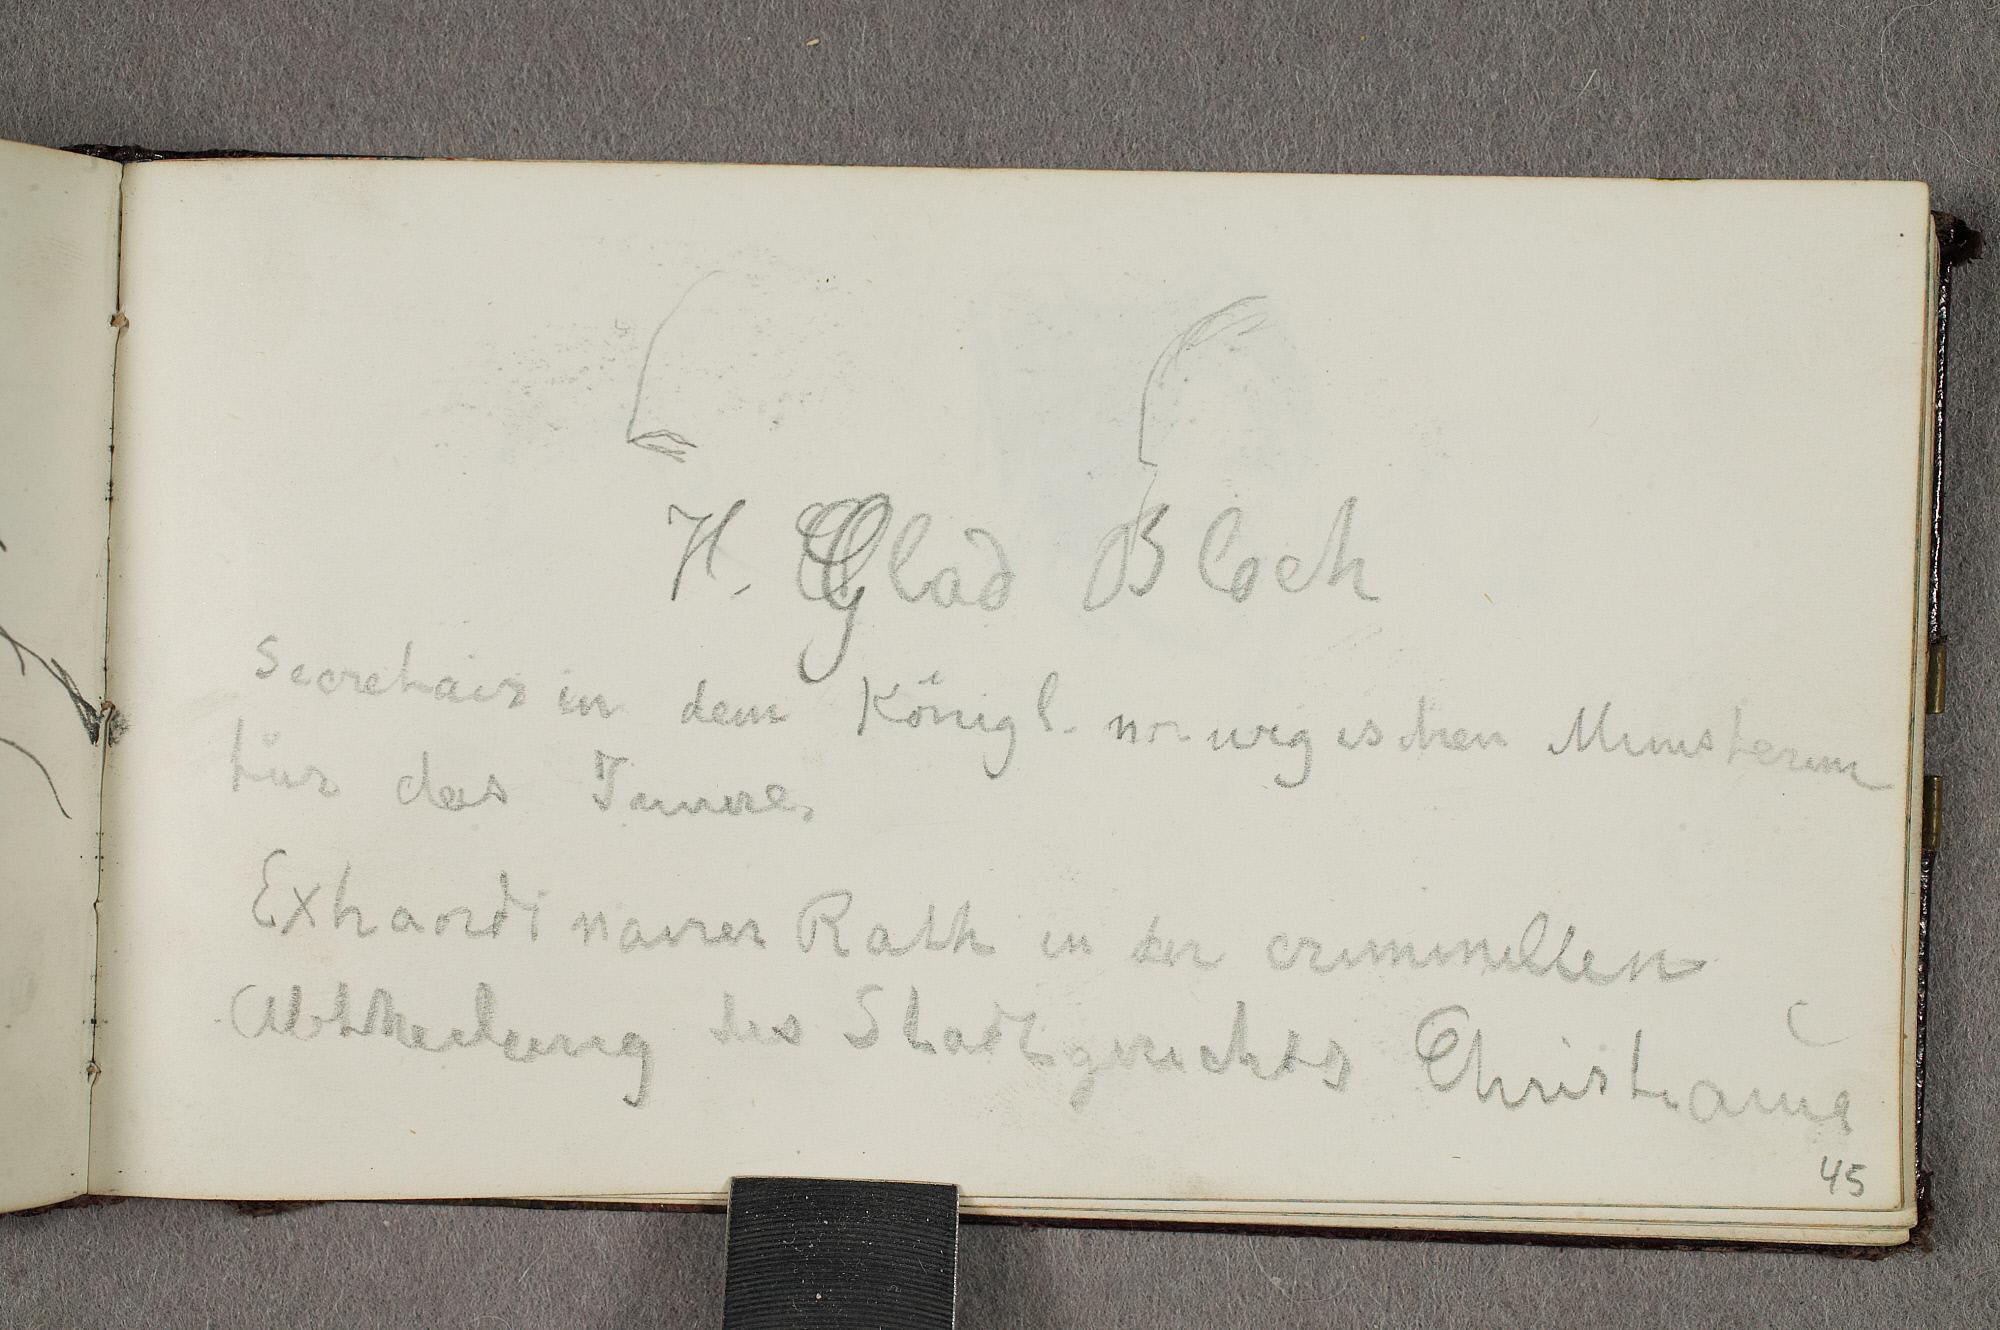 H. Glad Bloch
Secretair in dem Königl. norwegischen Ministerium
für das Innere,
Extraordinairer Rath in der criminellen
Abtheilung des Stadtgerichts Christiania
45